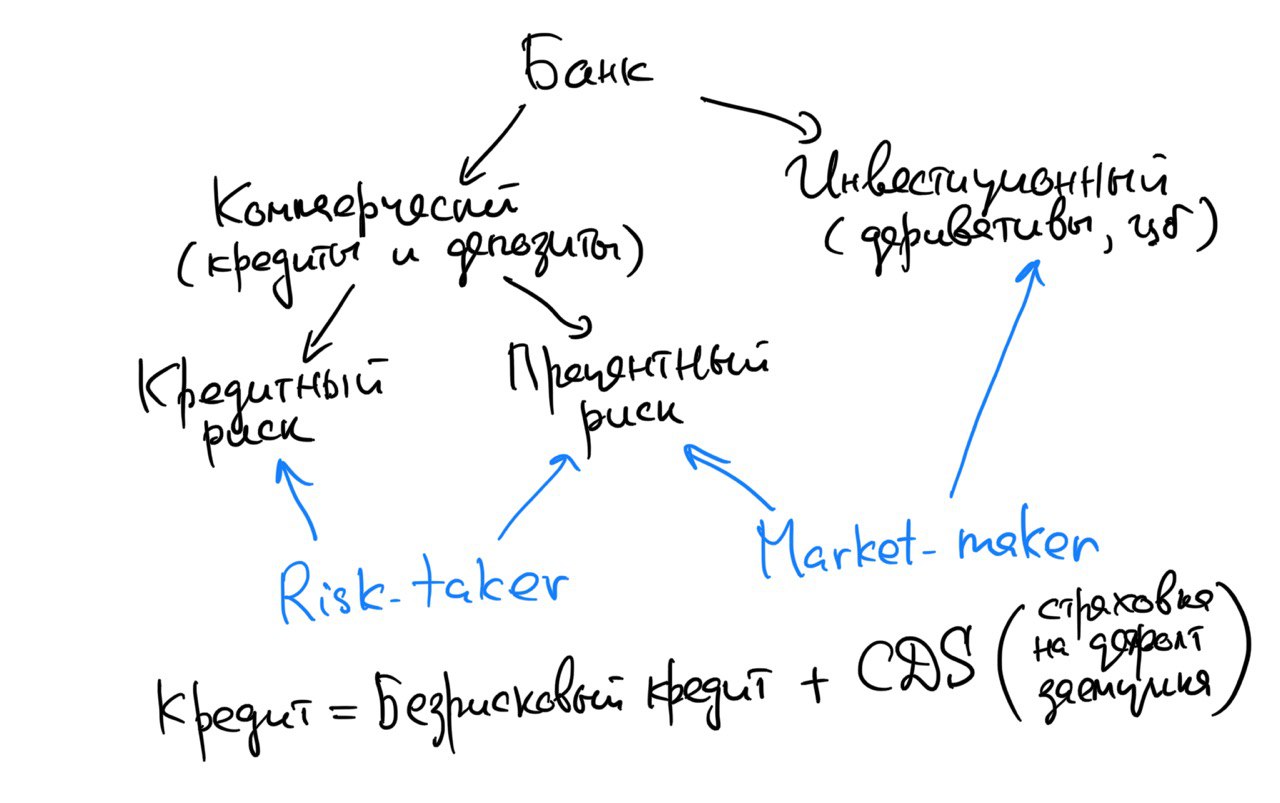 Банк
Коммерческий
(кредиты и депозиты)
Инвестиционный
(деривативы, цб)
Кредитный
риск
Процентный
риск
Risk-taker
Market-maker
Кредит = Безрисковый кредит + CDS (страховка
на дефолт
заемщика)